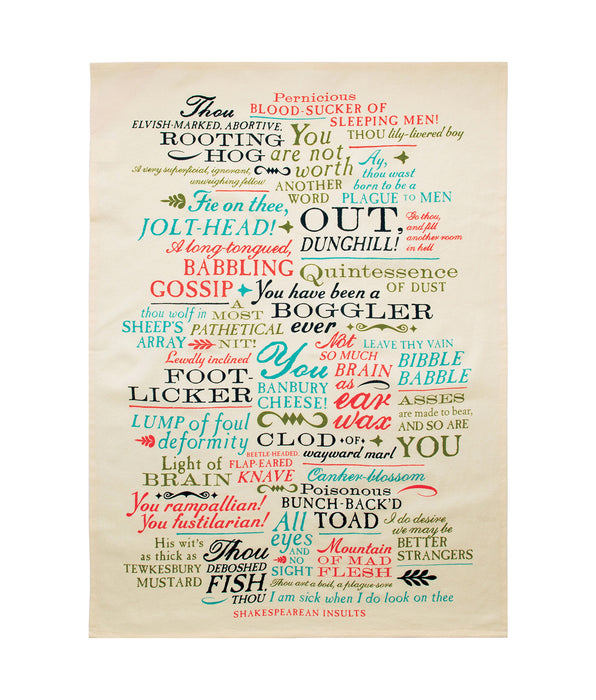 Pernicious
BLOOD-SUCKER OF
SLEEPING MEN!
Thou
ELVISH-MARKED, ABORTIVE,
ROOTING
HOG
You
are not
worth
ANOTHER
WORD
THOU lily-livered boy
A very superficial, ignorant,
unweighing fellow
Ay,
thou wast
born to be a
PLAGUE TO MEN
Fie on thee,
JOLT-HEAD!
OUT,
DUNGHILL!
Go thou,
and fill
another room
in hell
A long-tongued,
BABBLING
GOSSIP
Quintessence
OF DUST
You have been a
BOGGLER
ever
thou wolf in
SHEEP'S
ARRAY
A
MOST
PATHETICAL
NIT!
Not
SO MUCH
BRAIN
as
ear
wax
LEAVE THY VAIN
BIBBLE
BABBLE
Lewdly inclined
FOOT-
LICKER
You
BANBURY
CHEESE!
ASSES
are made to bear,
AND SO ARE
YOU
LUMP of foul
deformity
CLOD OF
wayward marl
Light of
BRAIN
BEETLE-HEADED,
FLAP-EARED
KNAVE
Canker-blossom
Poisonous
BUNCH-BACK'D
TOAD
You rampallian!
You fustilarian!
All
eyes
AND
NO
SIGHT
I do desire
we may be
BETTER
STRANGERS
His wit's
as thick as
TEWKESBURY
MUSTARD
Thou
DEBOSHED
FISH,
THOU
Mountain
OF MAD
FLESH
Thou art a boil, a plague-sore
I am sick when I do look on thee
SHAKESPEAREAN INSULTS